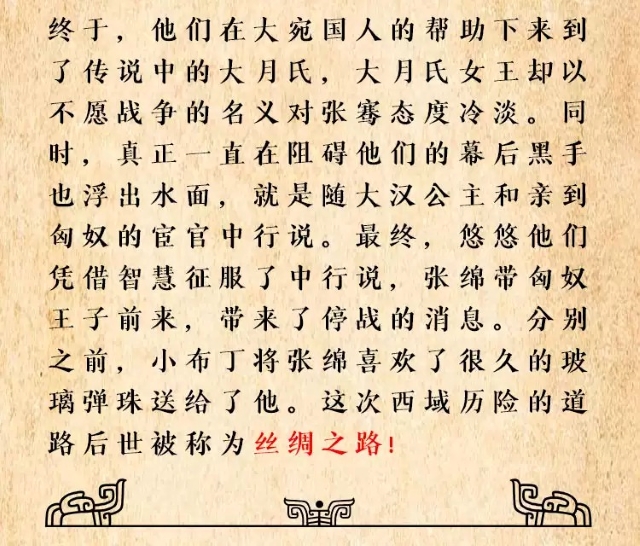 终于，他们在大宛国人的帮助下来到
了传说中的大月氏，大月氏女王却以
不愿战争的名义对张骞态度冷淡。同
时，真正一直在阻碍他们的幕后黑手
也浮出水面，就是随大汉公主和亲到
匈奴的宦官中行说。最终，悠悠他们
凭借智慧征服了中行说，张绵带匈奴
王子前来，带来了停战的消息。分别
之前，小布丁将张绵喜欢了很久的玻
璃弹珠送给了他。这次西域历险的道
路后世被称为丝绸之路！